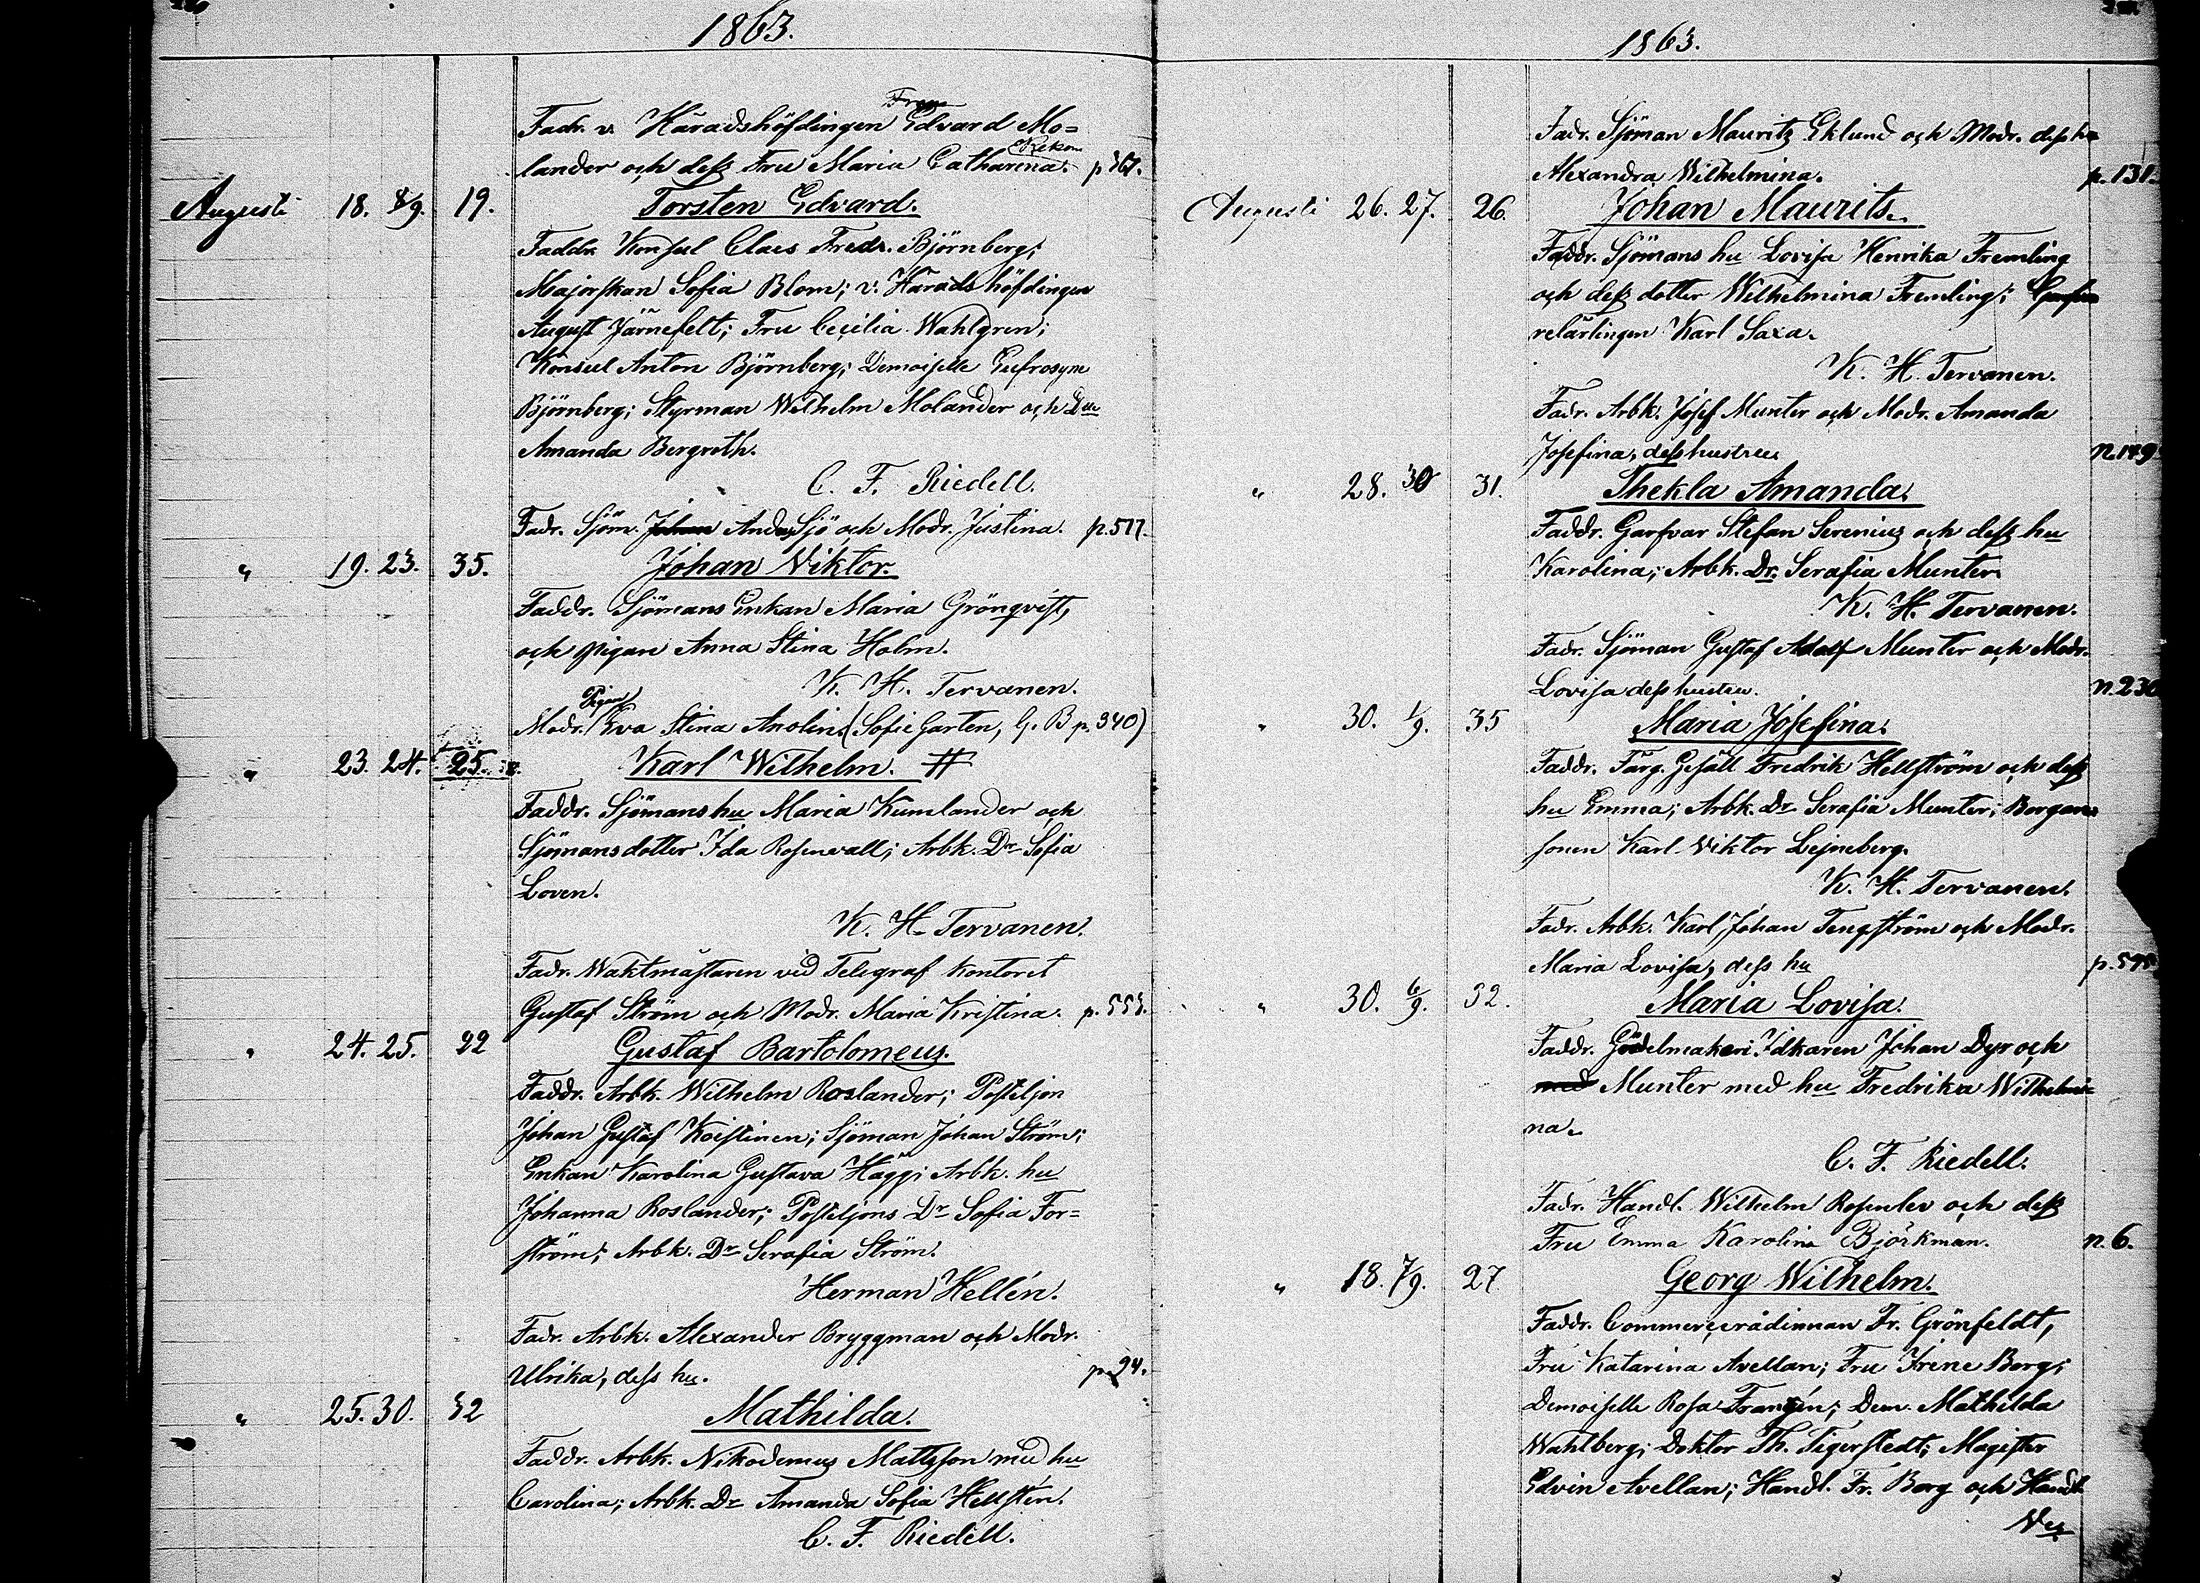 1863.
Fadr. v. Häradshöfdingen Edvard Mo=
lander och dess Fru Maria Catharina. p 361.
Augusti 18. 8/9. 19. Torsten Edvard.
Faddr. Konsul Claes Fredr. Björnberg;
Majorskan Sofia Blom; v. Häradshöfdingen
August Järnefelt; Fru Cecilia Wahlgren;
Konsul Anton Björnberg; Demoiselle Eufrosyne
Björnberg; Styrman Wilhelm Molander och Dlle
Amanda Bergroth.
C. F. Riedell.
Fadr. Sjöm. Johan Anders Sjö och Modr. Justina. p. 517.
" 19. 23. 35. Johan Viktor.
Faddr. Sjömans Enkan Maria Grönqvist,
och pigan Anna Stina Holm.
K. H. Tervanen.
Pigan
Modr. Eva Stina Anolin. (Sofie Garten, G. B p. 340)
" 23. 24. 25. Karl Wilhelm. #
Faddr. Sjömans hu Maria Kumlander och
Sjömansdotter Ida Rosenvall; Arbk. Dr Sofia
Loven.
K. H. Tervanen.
Fadr. Waktmästaren vid Telegraf kontoret
Gustaf Ström och Modr. Maria Kristina. p. 553.
" 24. 25. 22 Gustaf Bartolomeus.
Faddr. Arbk. Wilhelm Roslander; Postiljon
Johan Gustaf Koistinen; Sjöman Johan Ström;
Enkan Karolina Gustava Hägg; Arbk. hu
Johanna Roslander; Postiljons Dr Sofia For=
ström; Arbk. Dr Serafia Ström.
Herman Hellén.
Fadr. Arbk. Alexander Bryggman och Modr.
Ulrika, dess hu. p. 24.
" 25. 30. 32 Mathilda.
Faddr. Arbk. Nikodemus Mattsson med hu
Carolina; Arbk. Dr Amanda Sofia Hellstén.
C. F. Riedell.
1863.
Fadr. Sjöman Mauritz Eklund och Modr. dess hu
Alexandra Wilhelmina. p. 131.
Augusti 26. 27. 26. Johan Maurits.
Faddr. Sjömans hu Lovisa Henrika Fremling
och dess dotter Wilhelmina Fremling;
relärlingen Karl Saxa.
K. H. Tervanen.
Fadr. Arbk. Josef Munter och Modr. Amanda
Josefina, dess hustru n. 149
" 28. 30 31. Thekla Amanda.
Faddr. Garfvar Stefan Serenius och dess hu
Karolina; Arbk. Dr. Serafia Munter.
K. H. Tervanen.
Fadr. Sjöman Gustaf Adolf Munter och Modr.
Lovisa dess hustru. n. 230
" 30. 1/9. 35 Maria Josefina.
Faddr. Färg. Gesäll Fredrik Hellström och dess
hu Emma; Arbk. Dr Serafia Munter; Borgare
sonen Karl Viktor Lejneberg.
K. H. Tervanen.
Fadr. Arbk. Karl Johan Tengström och Modr.
Maria Lovisa, dess hu
" 30. 6/9. 32. Maria Lovisa.
Faddr. Gördelmakeri Idkaren Johan Dyr och
med Munter med hu Fredrika Wilhelmi=
na.
C. F. Riedell.
Fadr. Handl. Wilhelm Rosenlev och dess
Fru Emma Karolina Björkman. n. 6.
" 18. 7/9. 27 Georg Wilhelm.
Faddr. Commerserådinnan Fr. Grönfeldt,
Fru Katarina Avellan; Fru Irene Borg;
Demoiselle Rosa Franzén; Dem. Mathilda
Wahlberg; Doktor Th. Tigerstedt; Magister
Edvin Avellan; Handl. Fr. Borg och Handl